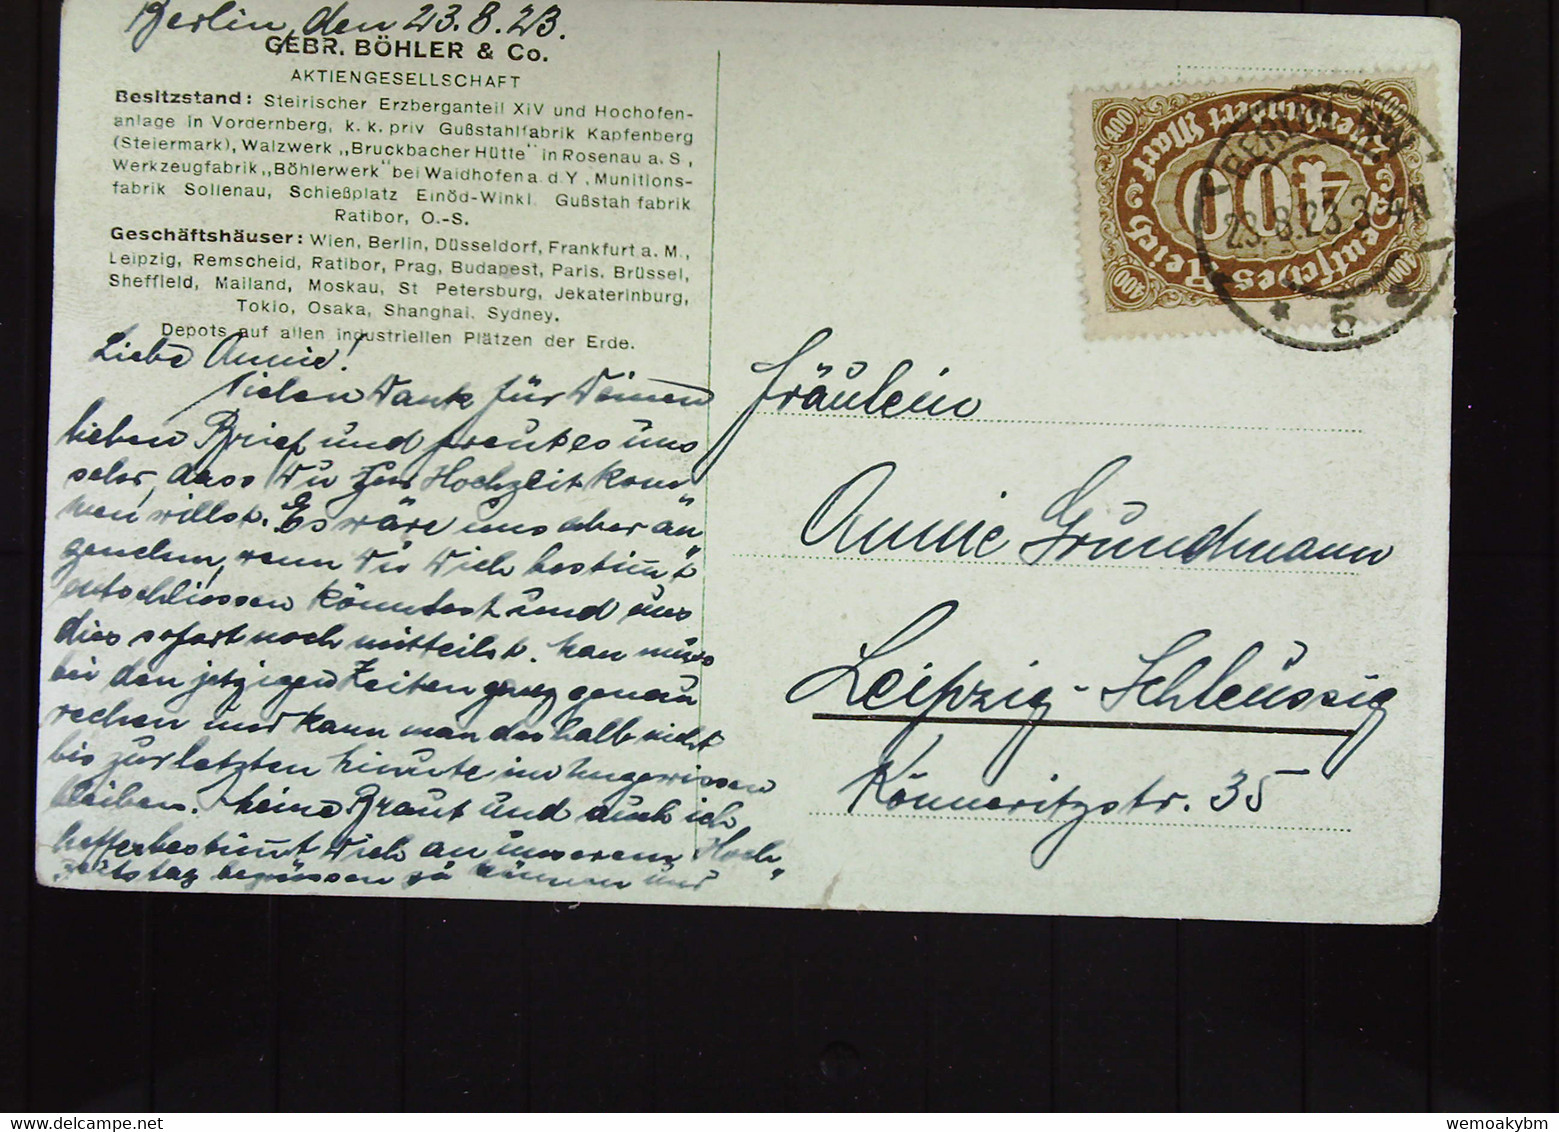 Berlin, den 23.8.23.
GEBR. BÖHLER & Co.
AKTIENGESELLSCHAFT
Besitzstand: Steirischer Erzberganteil XIV und Hochofen-
anlage in Vordernberg, k. k. priv Gußstahlfabrik Kapfenberg
(Steiermark), Walzwerk „Bruckbacher Hütte" in Rosenau a. S,
Werkzeugfabrik „Böhlerwerk" bei Waidhofen a. d Y, Munitions-
fabrik Sollenau, Schießplatz Einöd-Winkl Gußstahlfabrik
Ratibor, O.-S.
Geschäftshäuser: Wien, Berlin, Düsseldorf, Frankfurt a. M.,
Leipzig, Remscheid, Ratibor, Prag, Budapest, Paris, Brüssel,
Sheffield, Mailand, Moskau, St Petersburg, Jekaterinburg,
Tokio, Osaka, Shanghai, Sydney.
Depots auf allen industriellen Plätzen der Erde.
Liebe Annie!
Vielen Dank für Deinen
lieben Brief und freut es uns
sehr, dass Du zur Hochzeit kom"
men willst. Es wäre uns aber an"
genehm, wenn Du Dich bestimmt
entschliessen könntest und uns
dies sofort noch mitteilst. Man muss
bei den jetzigen Zeiten ganz genau
rechen und kann man deshalb nicht
bis zur letzten Minute im Ungewissen
bleiben. Meine Braut und auch ich
hoffen bestimmt Dich an unserem Hoch"
zeitstag begrüssen zu können und
Deutsches Reich
400
Vierhundert Mark
400
400
400
400
BERLIN NW
23.8.23.3-4N
* 5 *
Fräulein
Annie Grundmann
Leipzig-Schleussig
Könneritzstr. 35
wemoakybm